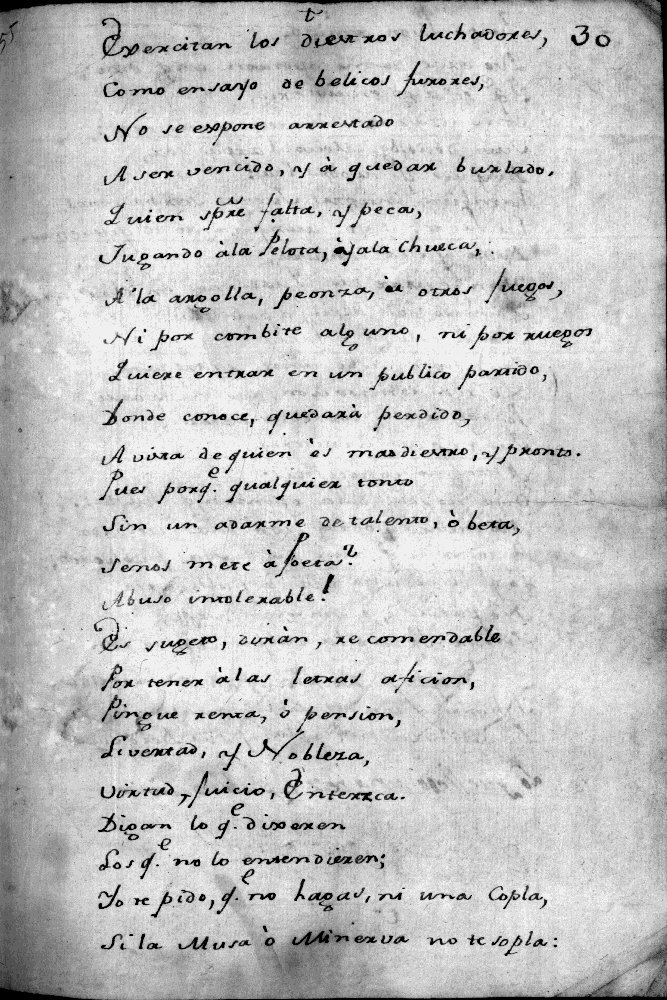 55
t
Exercitan los diestros luchadores, 30
Como ensayo de belicos furores,
No se expone arrestado
A ser vencido, y à quedar burlado.
Quien spre falta, y peca,
Jugando àla Pelota, y ala Chueca,
A la argolla, peonza, à otros juegos,
Ni por combite alguno, ni por ruegos
Quiere entrar en un publico partido,
Donde conoce, quedarà perdido,
A vista de quien ès mas diestro, y pronto.
Pues porqe. qualquier tonto
Sin un adarme de talento, ò beta,
Senos mete à Poeta?
Abuso intolerable!
Es sugeto, diràn, recomendable
Por tener àlas letras aficion,
Pingue renta, ò pension,
Livertad, y Nobleza,
Virtud, Juicio, Entereza.
Digan lo qe. dixeren
Los qe. no lo entendieren;
Yo te pido, qe. no hagas, ni una Copla,
Si la Musa ò Minerva no te sopla: